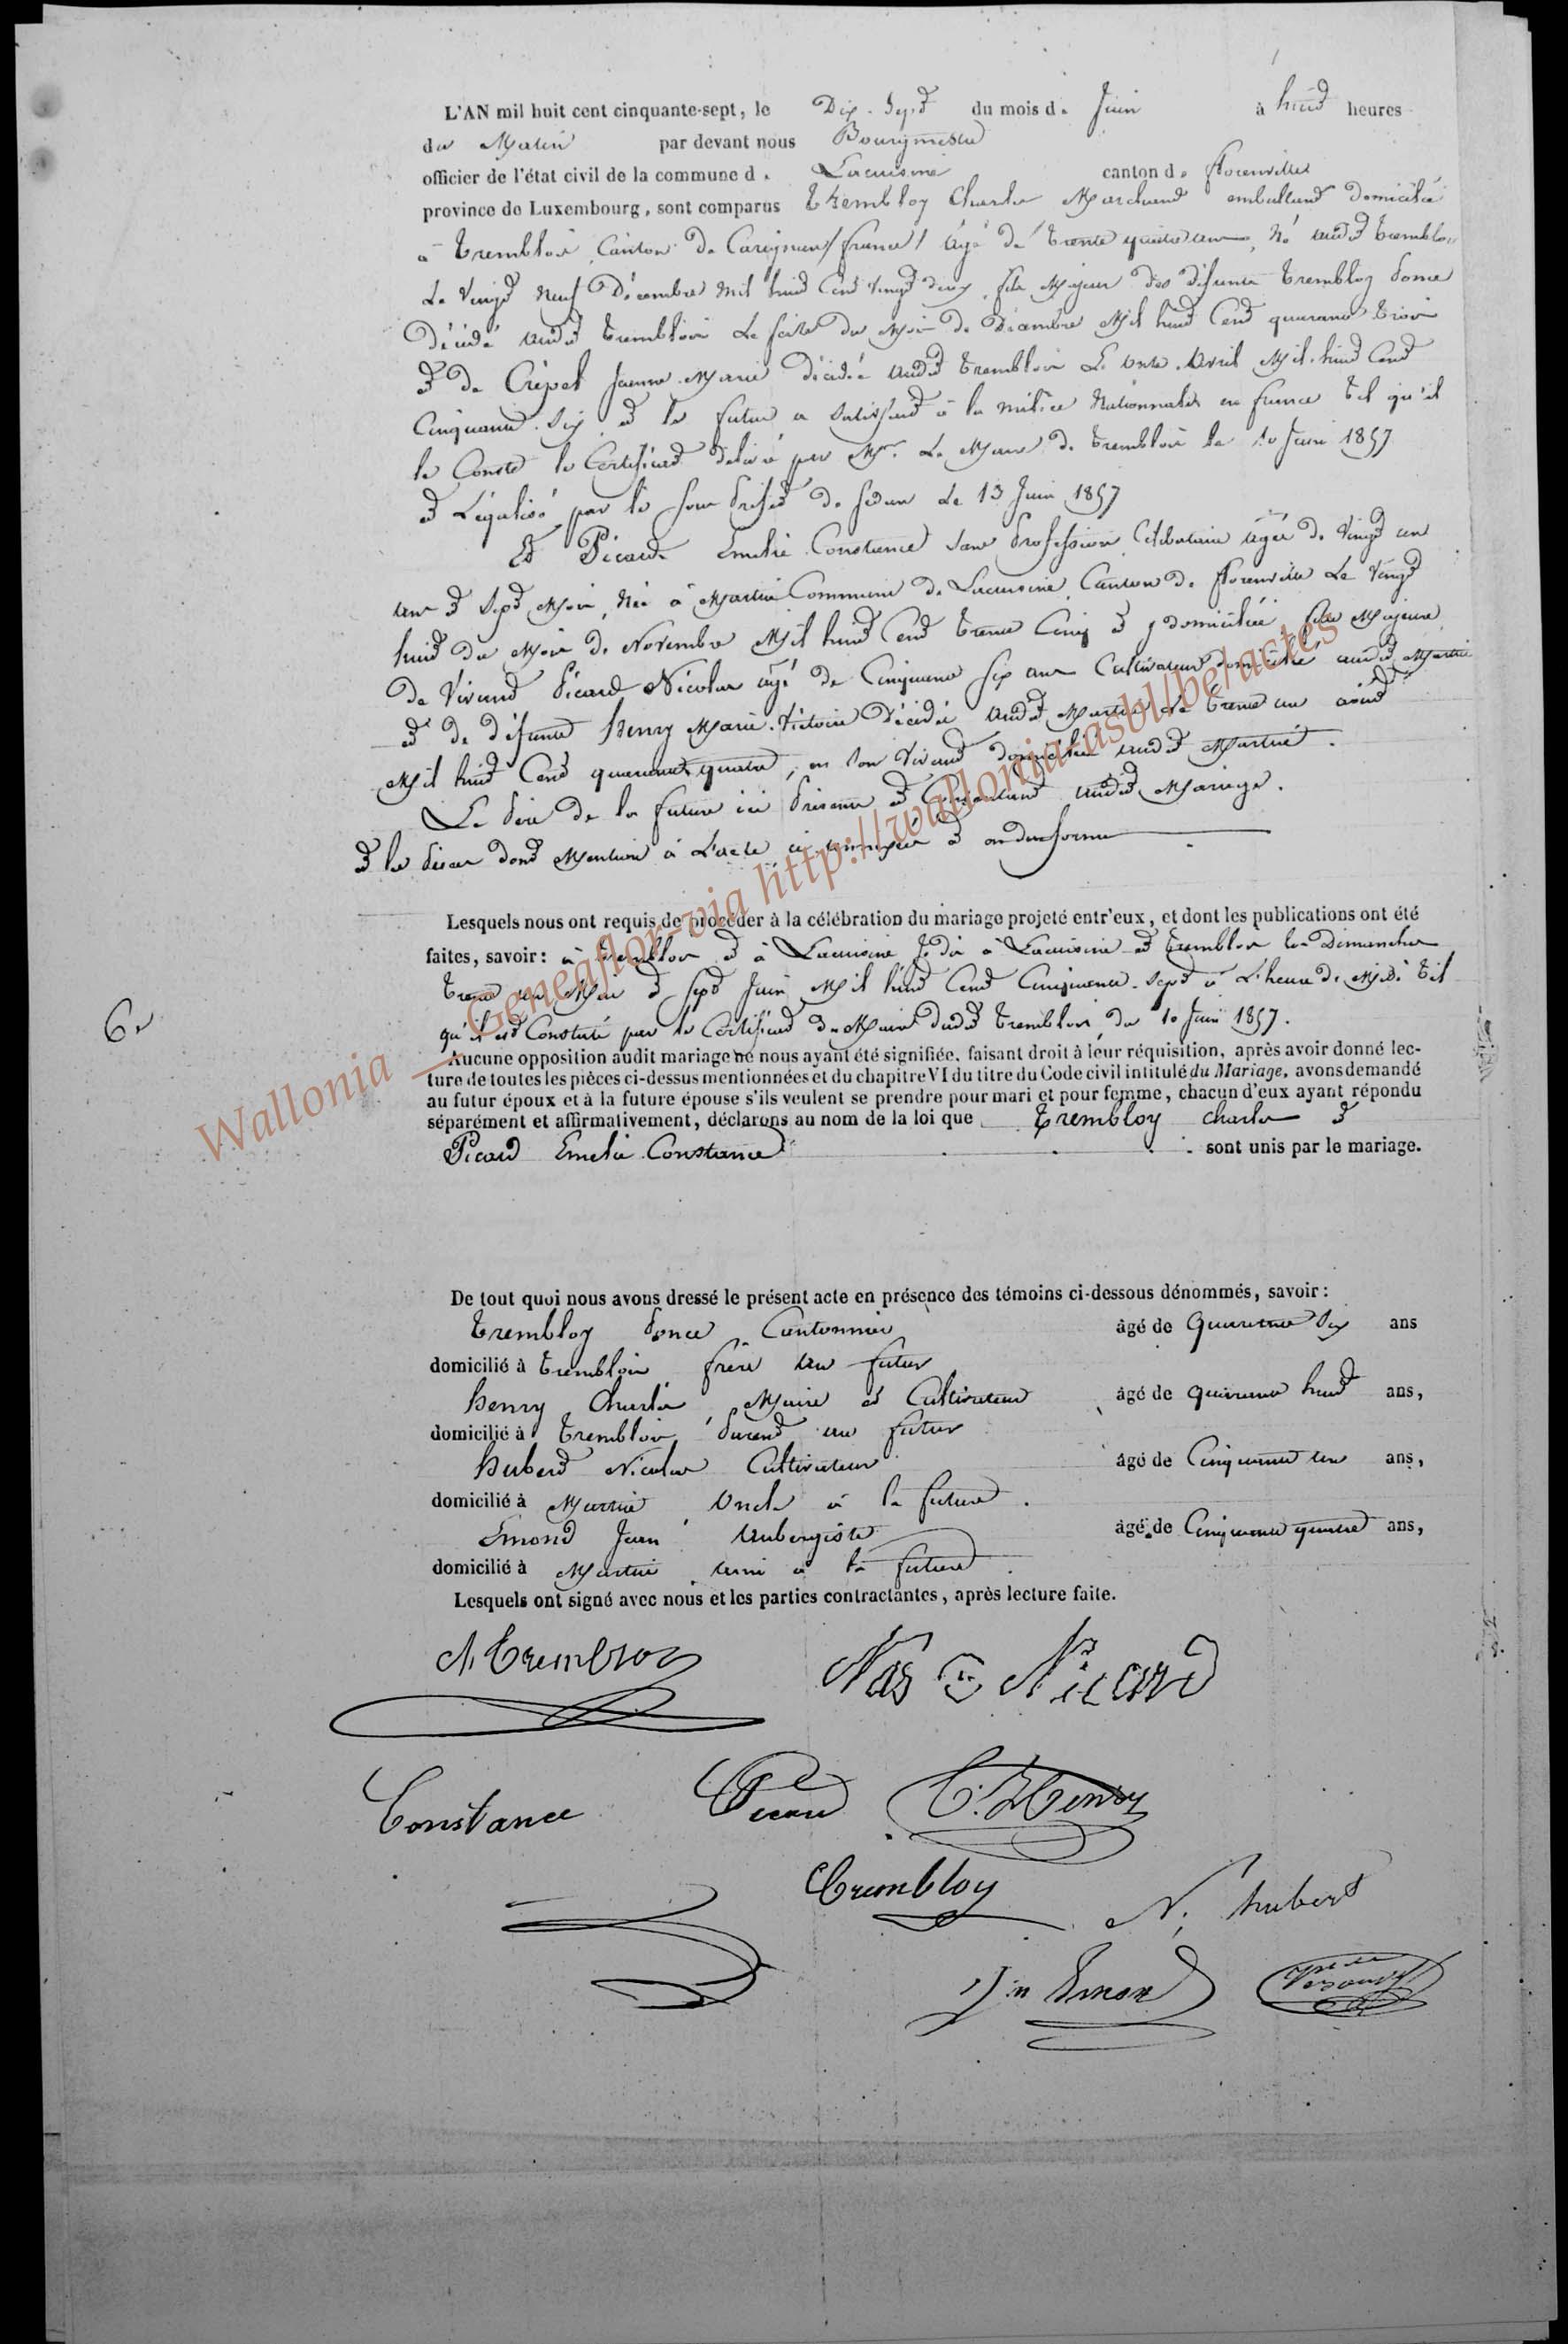 L'AN mil huit cent cinquante-sept, le Dix-Sept du mois de Juin à huit heures
du Matin par devant nous Bourgmestre
officier de l'état civil de la commune de Lacuisine canton de florenville
province de Luxembourg, sont comparus Trembloy Charles Marchand ambulant domicilié
à Tremblois Canton de Carignan (france) âgé de trente quatre ans, Né audit Tremblois
Le Vingt Neuf Décembre Mil huit Cent Vingt deux, fils Majeur des défunts Trembloy Ponce
Décédé audit Tremblois Le seize du Mois de Décembre Mil huit Cent quarante trois
et de Crépel Jeanne Marie décédée audit Tremblois Le onze Avril Mil huit Cent
Cinquante Six et le futur a Satisfait à la milice Nationnale en france tel qu'il
le Conste le Certificat délivré par Mr. Le Maire de Tremblois le 10 Juin 1857
et Légalisé par le Sous Préfet de Sedan Le 13 Juin 1857
Et Picard Emelie Constance Sans Profession Célibataire âgée de Vingt un
ans et Sept Mois, Née à Martué Commune de Lacuisine, Canton de florenville Le Vingt
huit du Mois de Novembre Mil huit Cent trente Cinq et y domiciliée fille Majeure
de Vivant Picard Nicolas âgé de Cinquante six ans Cultivateur domicilié audit Martué
et de défunte Henry Marie-Victoire Décédée audit Martué Le trente un août
Mil huit Cent quarante quatre, en Son Vivant domiciliée audit Martué.
Le Père de la future ici Présent et Consentant audit Mariage.
et les pièces dont Mention à L'acte ci annexées et en due forme
Lesquels nous ont requis de procéder à la célébration du mariage projeté entr'eux, et dont les publications ont été
faites, savoir: à Tremblois et à Lacuisine à Lacuisine et Tremblois les Dimanches
trente un Mai et sept Juin Mil huit Cent Cinquante-Sept à L'heure de Midi tel
qu'il est Constaté par le Certificat du Maire dudit Tremblois du 10 Juin 1857.
6e
Aucune opposition audit mariage ne nous ayant été signifiée, faisant droit à leur réquisition, après avoir donné lec-
ture de toutes les pièces ci-dessus mentionnées et du chapitre VI du titre du Code civil intitulé du Mariage, avons demandé
au futur époux et à la future épouse s'ils veulent se prendre pour mari et pour femme, chacun d'eux ayant répondu
séparément et affirmativement, déclarons au nom de la loi que Trembloy Charles et
Picard Emelie Constance sont unis par le mariage.
De tout quoi nous avons dressé le présent acte en présence des témoins ci-dessous dénommés, savoir:
Trembloy Ponce Cantonnier âgé de Quarante Six ans
domicilié à Tremblois frère au futur
Henry Charles Maire et Cultivateur âgé de quarante huit ans,
domicilié à Tremblois Parent au futur
Hubert Nicolas Cultivateur âgé de Cinquante un ans,
domicilié à Martué Oncle à la future.
Emond Jean Aubergiste âgé de Cinquante quatre ans,
domicilié à Martué ami à la future
Lesquels ont signé avec nous et les parties contractantes, après lecture faite.
Ch Trembloy Nas Picard
Constance Picard C. Henry
Trembloy N. hubert
Jn Emond
Wallonia _Geneaflor-via http://wallonia-asbl/be/actes